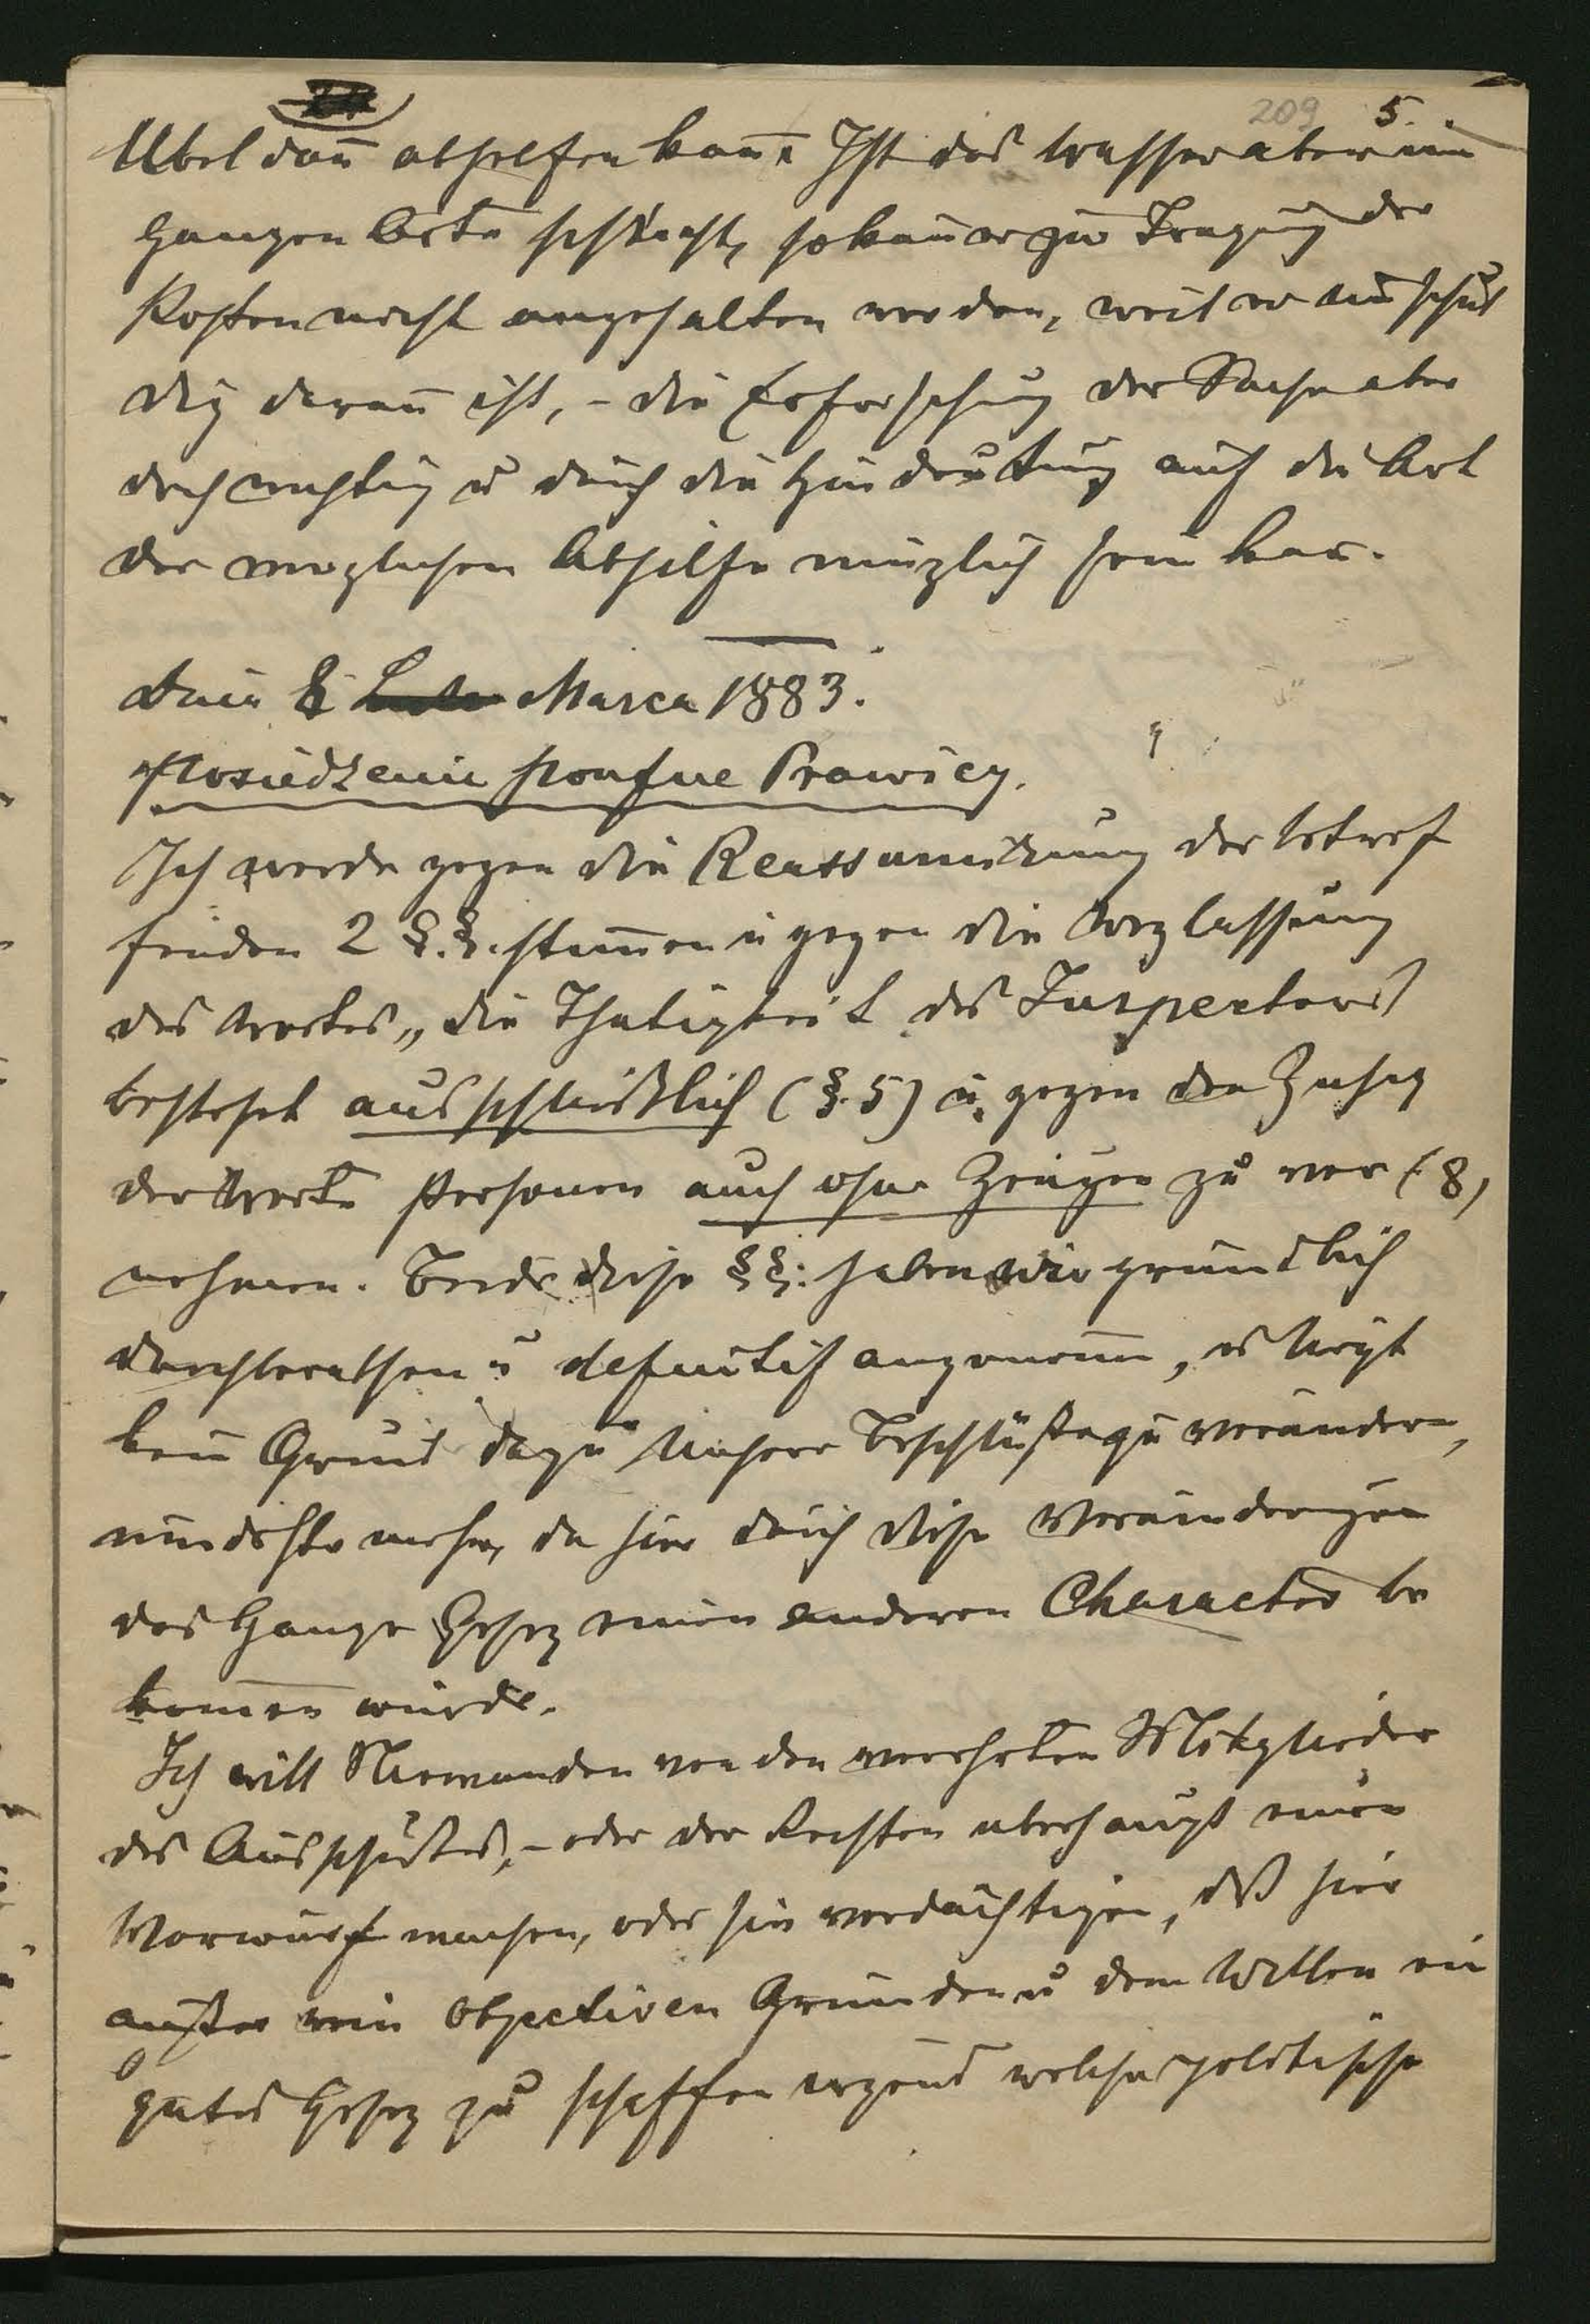 209 5.
Übel dan̄ abhelfen kan̄. Ist das Wasser aber im
ganzen Orte schlecht, so kan̄ er zur Tragung der
Kosten nicht angehalten werden, weil er unschul
dig daran ist, – die Erforschung der Sache aber
doch wichtig u durch die Hindeutung auf die Art
der moglichen Abhilfe nützlich sein kan.
Dnia 8 Marca 1883.
Posiedzenie poufne Prawicy.
Ich werde gegen die Reassumirung der betref
fenden 2 §.§. stim̄en u gegen die Weglassung
des Wortes „die Thatigkeit des Inspectors
besteht ausschließlich (§.5) u. gegen den Zusaz
der Worte Personen auch ohne Zeugen zu ver (8)
nehmen. Beide diese §§: haben wir grundlich
durchberathen u definitif angenom̄en, es liegt
kein Grund dazu unsere Beschlüße zu verändern,
mindeste mehr, da hier durch diese Veränderungen
das Ganze Gesez einen anderen Character be
kom̄en würde.
Ich will Niemanden von den verehrten Mitglieder
des Ausschußes, – oder der Rechten uberhaupt einen
Vorwurf machen, oder sie verdächtigen, daß hier
außer rein objectiven Gründen u dem Willen ein
gutes Gesez zu schaffen irgend welche politische